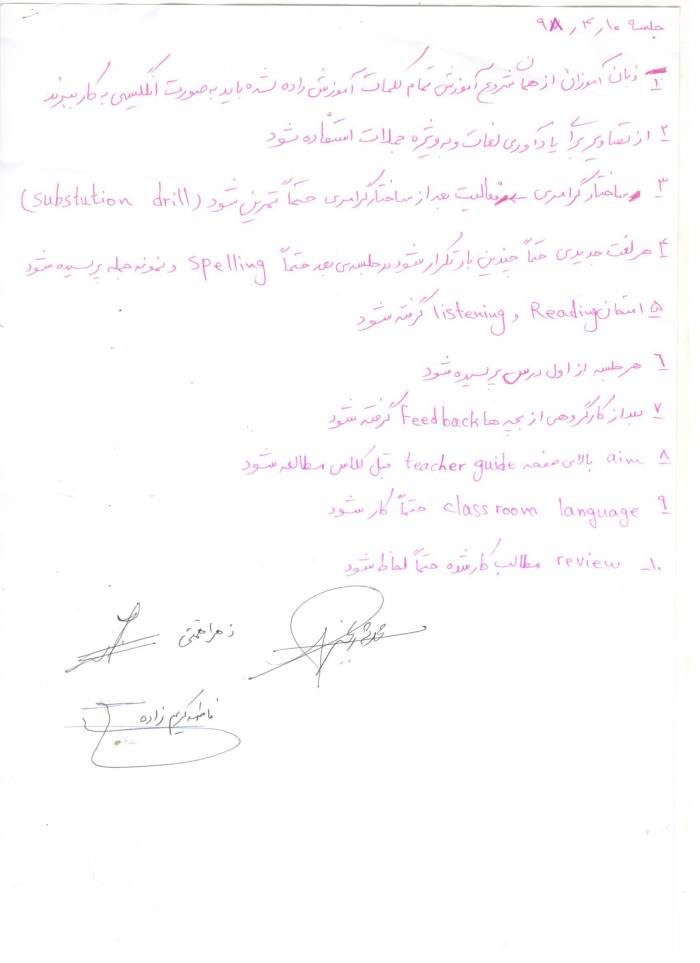 جلسه ۱۰ , ۴ , ۹۸
۱ زبان آموزان از همان شروع آموزش تمام کلمات آموزش داده شده باید به صورت انگلیسی به کار ببرند
۲ از تصاویر برای یادآوری لغات و به ویژه جملات استفاده شود
۳ ساختار گرامری فعالیت بعد از ساختار گرامری حتماً تمرین شود (substution drill)
۴ هر لغت جدیدی حتماً چندین بار تکرار شود در جلسه‌ی بعد حتماً spelling و نمونه جمله پرسیده شود
۵ امتحان Reading و listening گرفته شود
۶ هر جلسه از اول درس پرسیده شود
۷ بعد از کار گروهی از بچه ها Feedback گرفته شود
۸ aim بالای صفحه teacher guide قبل کلاس مطالعه شود
۹ classroom language حتماً کار شود
۱۰- review مطالب کار شده حتماً لحاظ شود
زهرا
فاطمه کریم زاده